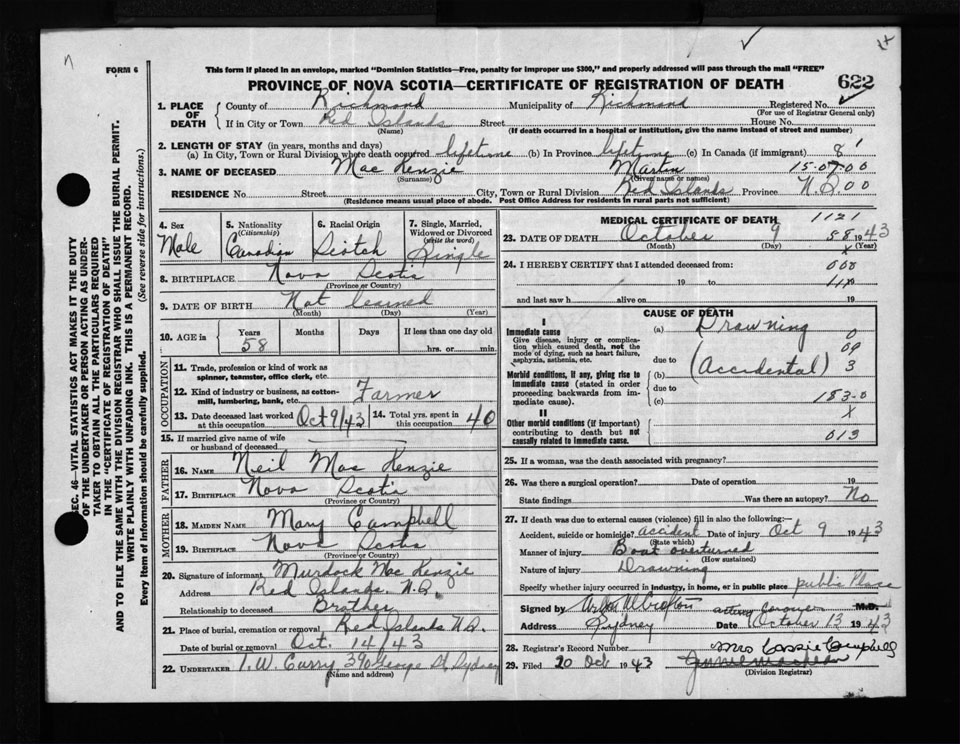 FORM 6
This form if placed in an envelope, marked "Dominion Statistics—Free, penalty for improper use $300," and properly addressed will pass through the mail "FREE"
PROVINCE OF NOVA SCOTIA—CERTIFICATE OF REGISTRATION OF DEATH
622
SEC. 46—VITAL STATISTICS ACT MAKES IT THE DUTY
OF THE UNDERTAKER OR PERSON ACTING AS UNDER-
TAKER TO OBTAIN ALL THE PARTICULARS REQUIRED
IN THE "CERTIFICATE OF REGISTRATION OF DEATH"
AND TO FILE THE SAME WITH THE DIVISION REGISTRAR WHO SHALL ISSUE THE BURIAL PERMIT.
WRITE PLAINLY WITH UNFADING INK. THIS IS A PERMANENT RECORD.
Every item of information should be carefully supplied. (See reverse side for instructions.)
1. PLACE OF DEATH
County of Richmond Municipality of Richmond Registered No.
(For use of Registrar General only)
If in City or Town Red Islands Street House No.
(Name) (If death occurred in a hospital or institution, give the name instead of street and number)
2. LENGTH OF STAY (in years, months and days)
(a) In City, Town or Rural Division where death occurred lifetime (b) In Province lifetime (c) In Canada (if immigrant) 8 1
3. NAME OF DECEASED Mac Kenzie Martin 15-07-00
(Surname) (Given name or names)
RESIDENCE No. Street City, Town or Rural Division Red Islands Province N.S. 00
(Residence means usual place of abode. Post Office Address for residents in rural parts not sufficient)
4. Sex Male
5. Nationality (Citizenship) Canadian
6. Racial Origin Scotch
7. Single, Married, Widowed or Divorced (write the word) Single
8. BIRTHPLACE Nova Scotia
(Province or Country)
9. DATE OF BIRTH Not learned
(Month) (Day) (Year)
10. AGE in Years Months Days If less than one day old
58 hrs. or min.
OCCUPATION
11. Trade, profession or kind of work as spinner, teamster, office clerk, etc.
12. Kind of industry or business, as cotton-mill, lumbering, bank, etc. Farmer
13. Date deceased last worked at this occupation Oct 9/43 14. Total yrs. spent in this occupation 40
15. If married give name of wife or husband of deceased
FATHER
16. NAME Neil Mac Kenzie
17. BIRTHPLACE Nova Scotia
(Province or Country)
MOTHER
18. MAIDEN NAME Mary Campbell
19. BIRTHPLACE Nova Scotia
(Province or Country)
20. Signature of informant Murdock Mac Kenzie
Address Red Islands. N.S.
Relationship to deceased Brother
21. Place of burial, cremation or removal Red Islands N.S.
Date of burial or removal Oct. 14/43
22. UNDERTAKER T. W. Curry, 390 George St, Sydney
(Name and address)
MEDICAL CERTIFICATE OF DEATH 1121
23. DATE OF DEATH October 9 58 1943
(Month) (Day) (Year)
24. I HEREBY CERTIFY that I attended deceased from: 000
19 to 19
and last saw h alive on 19
CAUSE OF DEATH
I
Immediate cause
Give disease, injury or complication which caused death, not the mode of dying, such as heart failure, asphyxia, asthenia, etc.
(a) Drowning 0
09
due to
(b) (Accidental) 3
Morbid conditions, if any, giving rise to immediate cause (stated in order proceeding backwards from immediate cause).
due to
(c) 183-0
II
Other morbid conditions (if important) contributing to death but not causally related to immediate cause.
X
013
25. If a woman, was the death associated with pregnancy?
26. Was there a surgical operation? Date of operation 19
State findings Was there an autopsy? No
27. If death was due to external causes (violence) fill in also the following:
Accident, suicide or homicide? accident Date of injury Oct 9 1943
(State which)
Manner of injury Boat overturned
(How sustained)
Nature of injury Drowning
Specify whether injury occurred in industry, in home, or in public place public Place
Signed by M.D.
Address Sydney Date October 13 1943
28. Registrar's Record Number Mrs Cassie Campbell
29. Filed 20 Oct 1943
(Division Registrar)